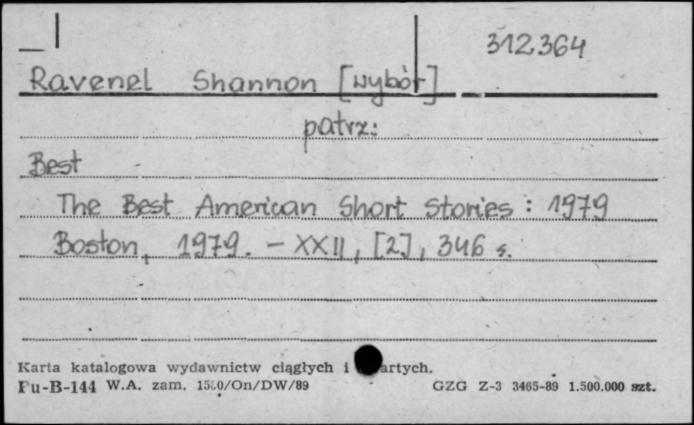 312364
Ravenel Shannon [wybór]
patrz:
Best
The Best American Short Stories : 1979
Boston, 1979. – XXII, [2], 346 s.
Karta katalogowa wydawnictw ciągłych i artych.
Pu-B-144 W.A. zam. /On/DW/89 GZG Z-3 3465-89 1.500.000 szt.